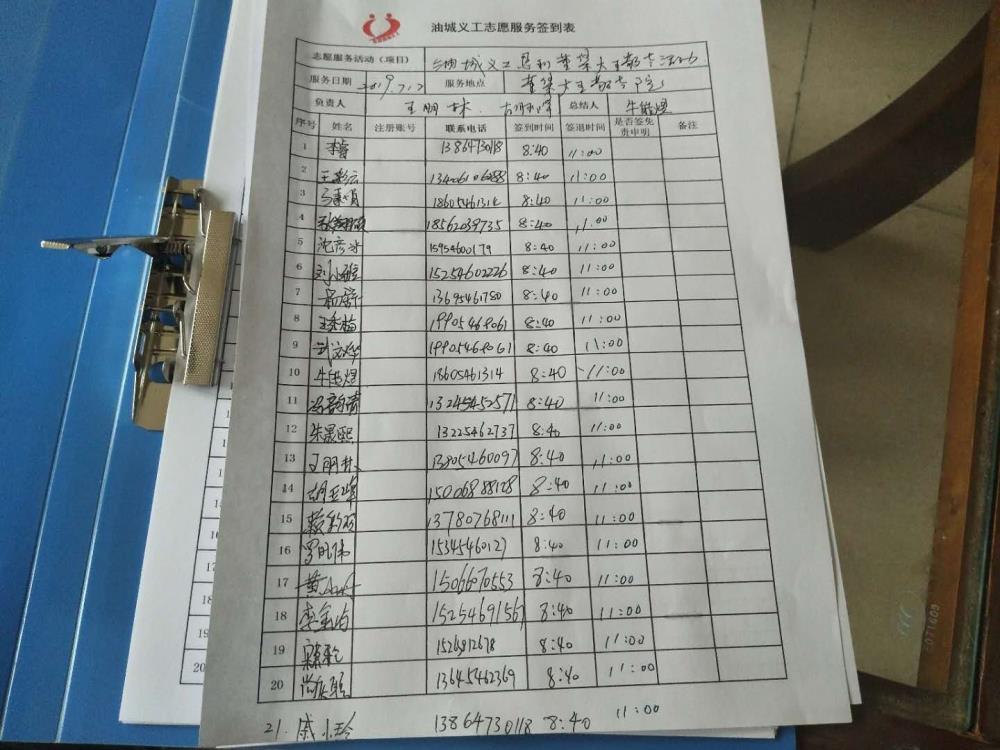 油城义工志愿服务签到表
志愿服务活动（项目） 油城义工
服务日期 2019.7.12 服务地点
负责人 王朋林 总结人 牛能煜
序号 姓名 注册账号 联系电话 签到时间 签退时间 是否签免责申明 备注
1 李睿 13864730118 8:40 11:00
2 王彩云 13406106088 8:40 11:00
3 18605461314 8:40 11:00
4 18562039735 8:40 11:00
5 沈彦冰 15954600179 8:40 11:00
6 15254602226 8:40 11:00
7 13695461780 8:40 11:00
8 王秀梅 19905469061 8:40 11:00
9 武文烨 19905469061 8:40 11:00
10 牛能煜 18605461314 8:40 11:00
11 冯韵晴 13245452571 8:40 11:00
12 朱晟熙 13225462737 8:40 11:00
13 王朋林 13805460097 8:40 11:00
14 胡玉峰 15006888128 8:40 11:00
15 13780768111 8:40 11:00
16 15345460127 8:40 11:00
17 黄 1506670553 8:40 11:00
18 李金均 15254691567 8:40 11:00
19 8:40 11:00
20 13645462369 8:40 11:00
21. 戚小玲 13864730118 8:40 11:00
5071600